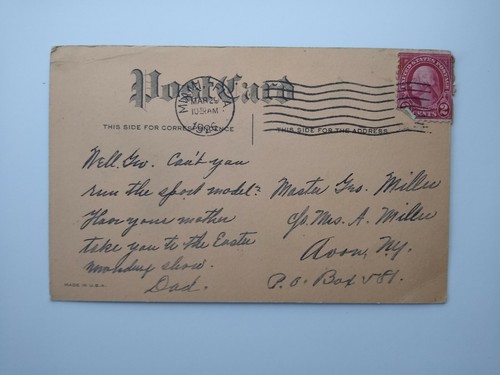 Post Card
MAR 29
1926
UNITED STATES POSTAGE
2 CENTS 2
THIS SIDE FOR CORRESPONDENCE
THIS SIDE FOR THE ADDRESS
Well Geo. Can't you
run the sport model?
Have your mother
take you to the Easter
monday show.
Dad.
Master Geo. Miller
c/o Mrs. A. Miller
Avon, N.Y.
P.O. Box 581.
MADE IN U.S.A.